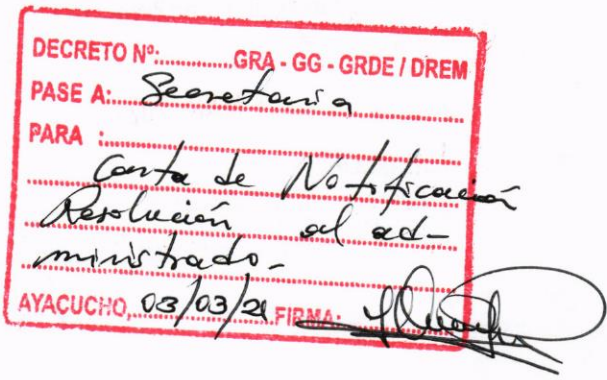 DECRETO Nº:..............GRA - GG - GRDE / DREM
PASE A:.....Secretaria
PARA :
Carta de Notificación
Resolución al ad-
ministrado.-
AYACUCHO, 03/03/21 FIRMA: